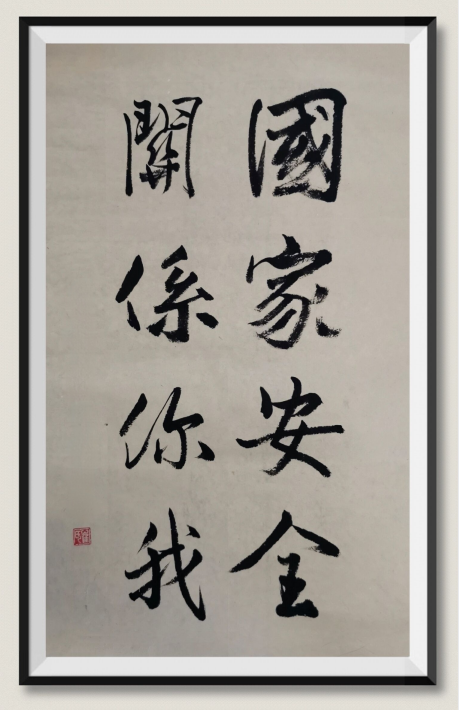 國家安全
關係你我